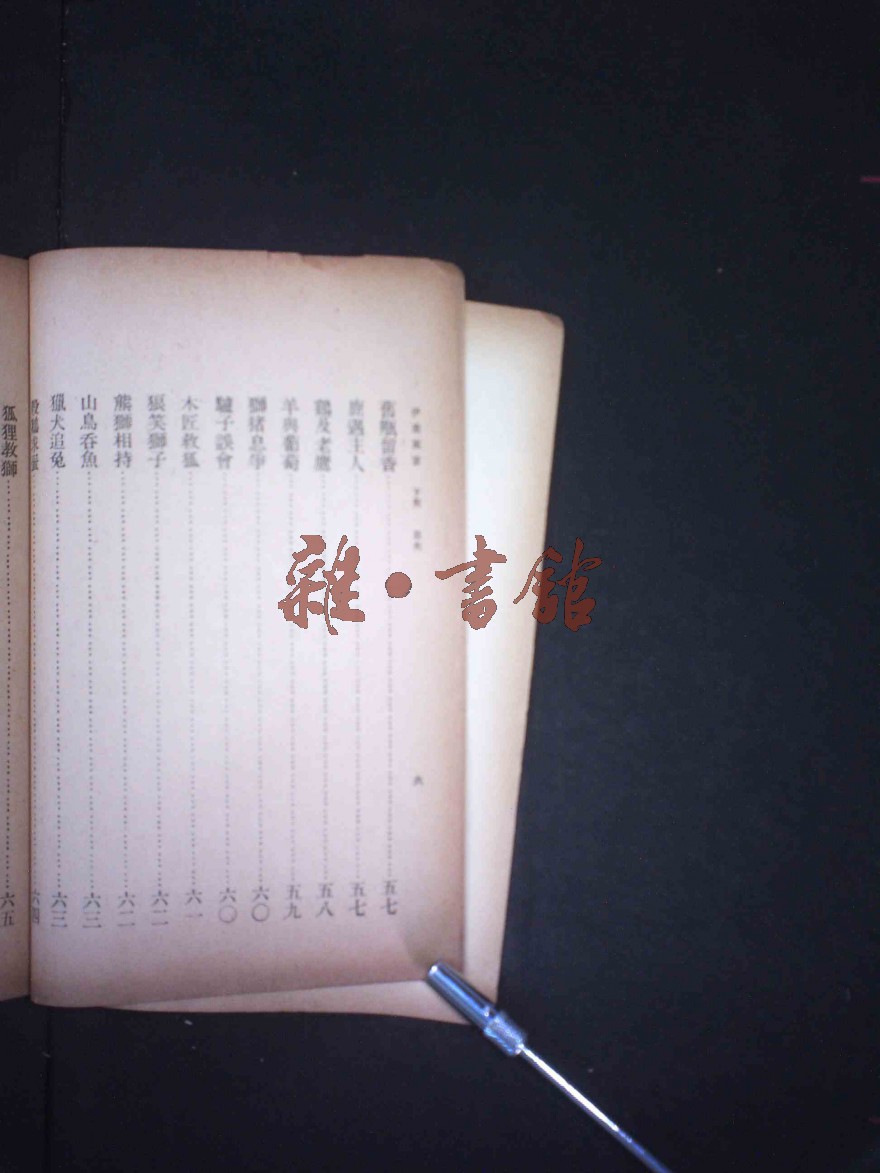 伊索寓言 下冊 目次 六
舊瓶留香……五七
鹿遇主人……五七
鶴及老鷹……五八
羊與葡萄……五九
獅猪息爭……六〇
驢子誤會……六〇
木匠救狐……六一
狼笑獅子……六二
熊獅相持……六二
山鳥吞魚……六三
獵犬追兔……六三
六四
狐狸教獅……六五
雜•書館